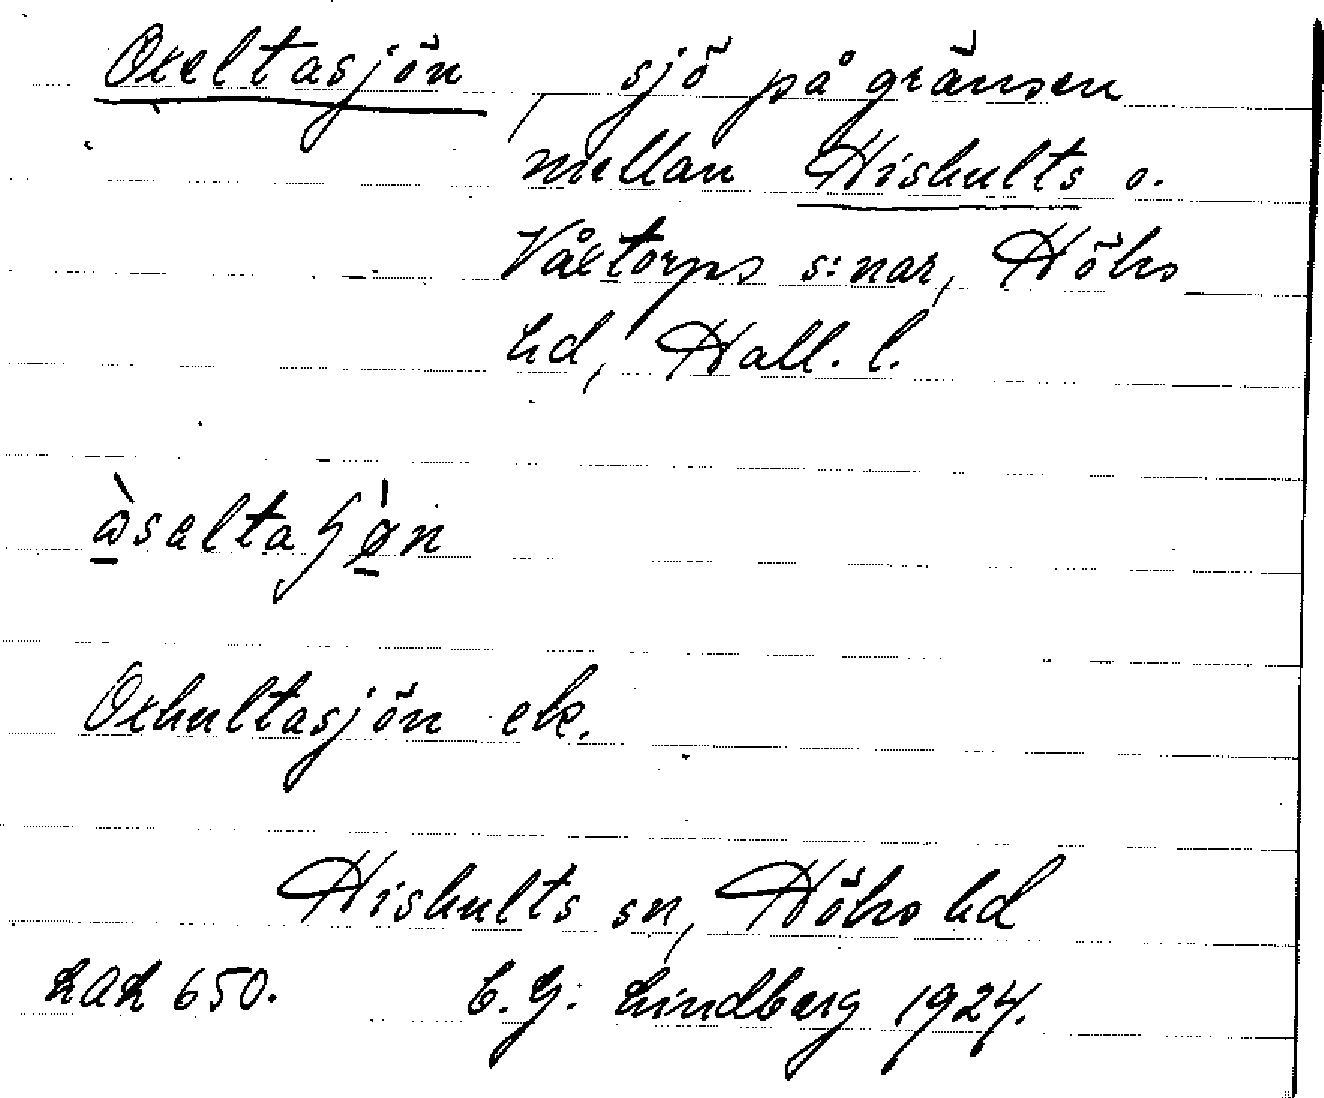 Oxeltasjön, sjö på gränsen
mellan Hishults o.
Våxtorps s:nar, Höks
hd, Hall. l.
àseltaɧøn
Oxhultasjön ek.
Hishults sn, Höks hd
LAL 650. C.G. Lindberg 1924.